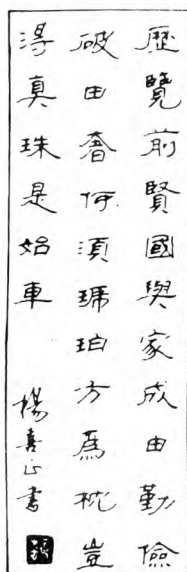 歷覽前賢國與家成由勤儉
破由奢何須琥珀方爲枕豈
得真珠是始車 楊喜正書